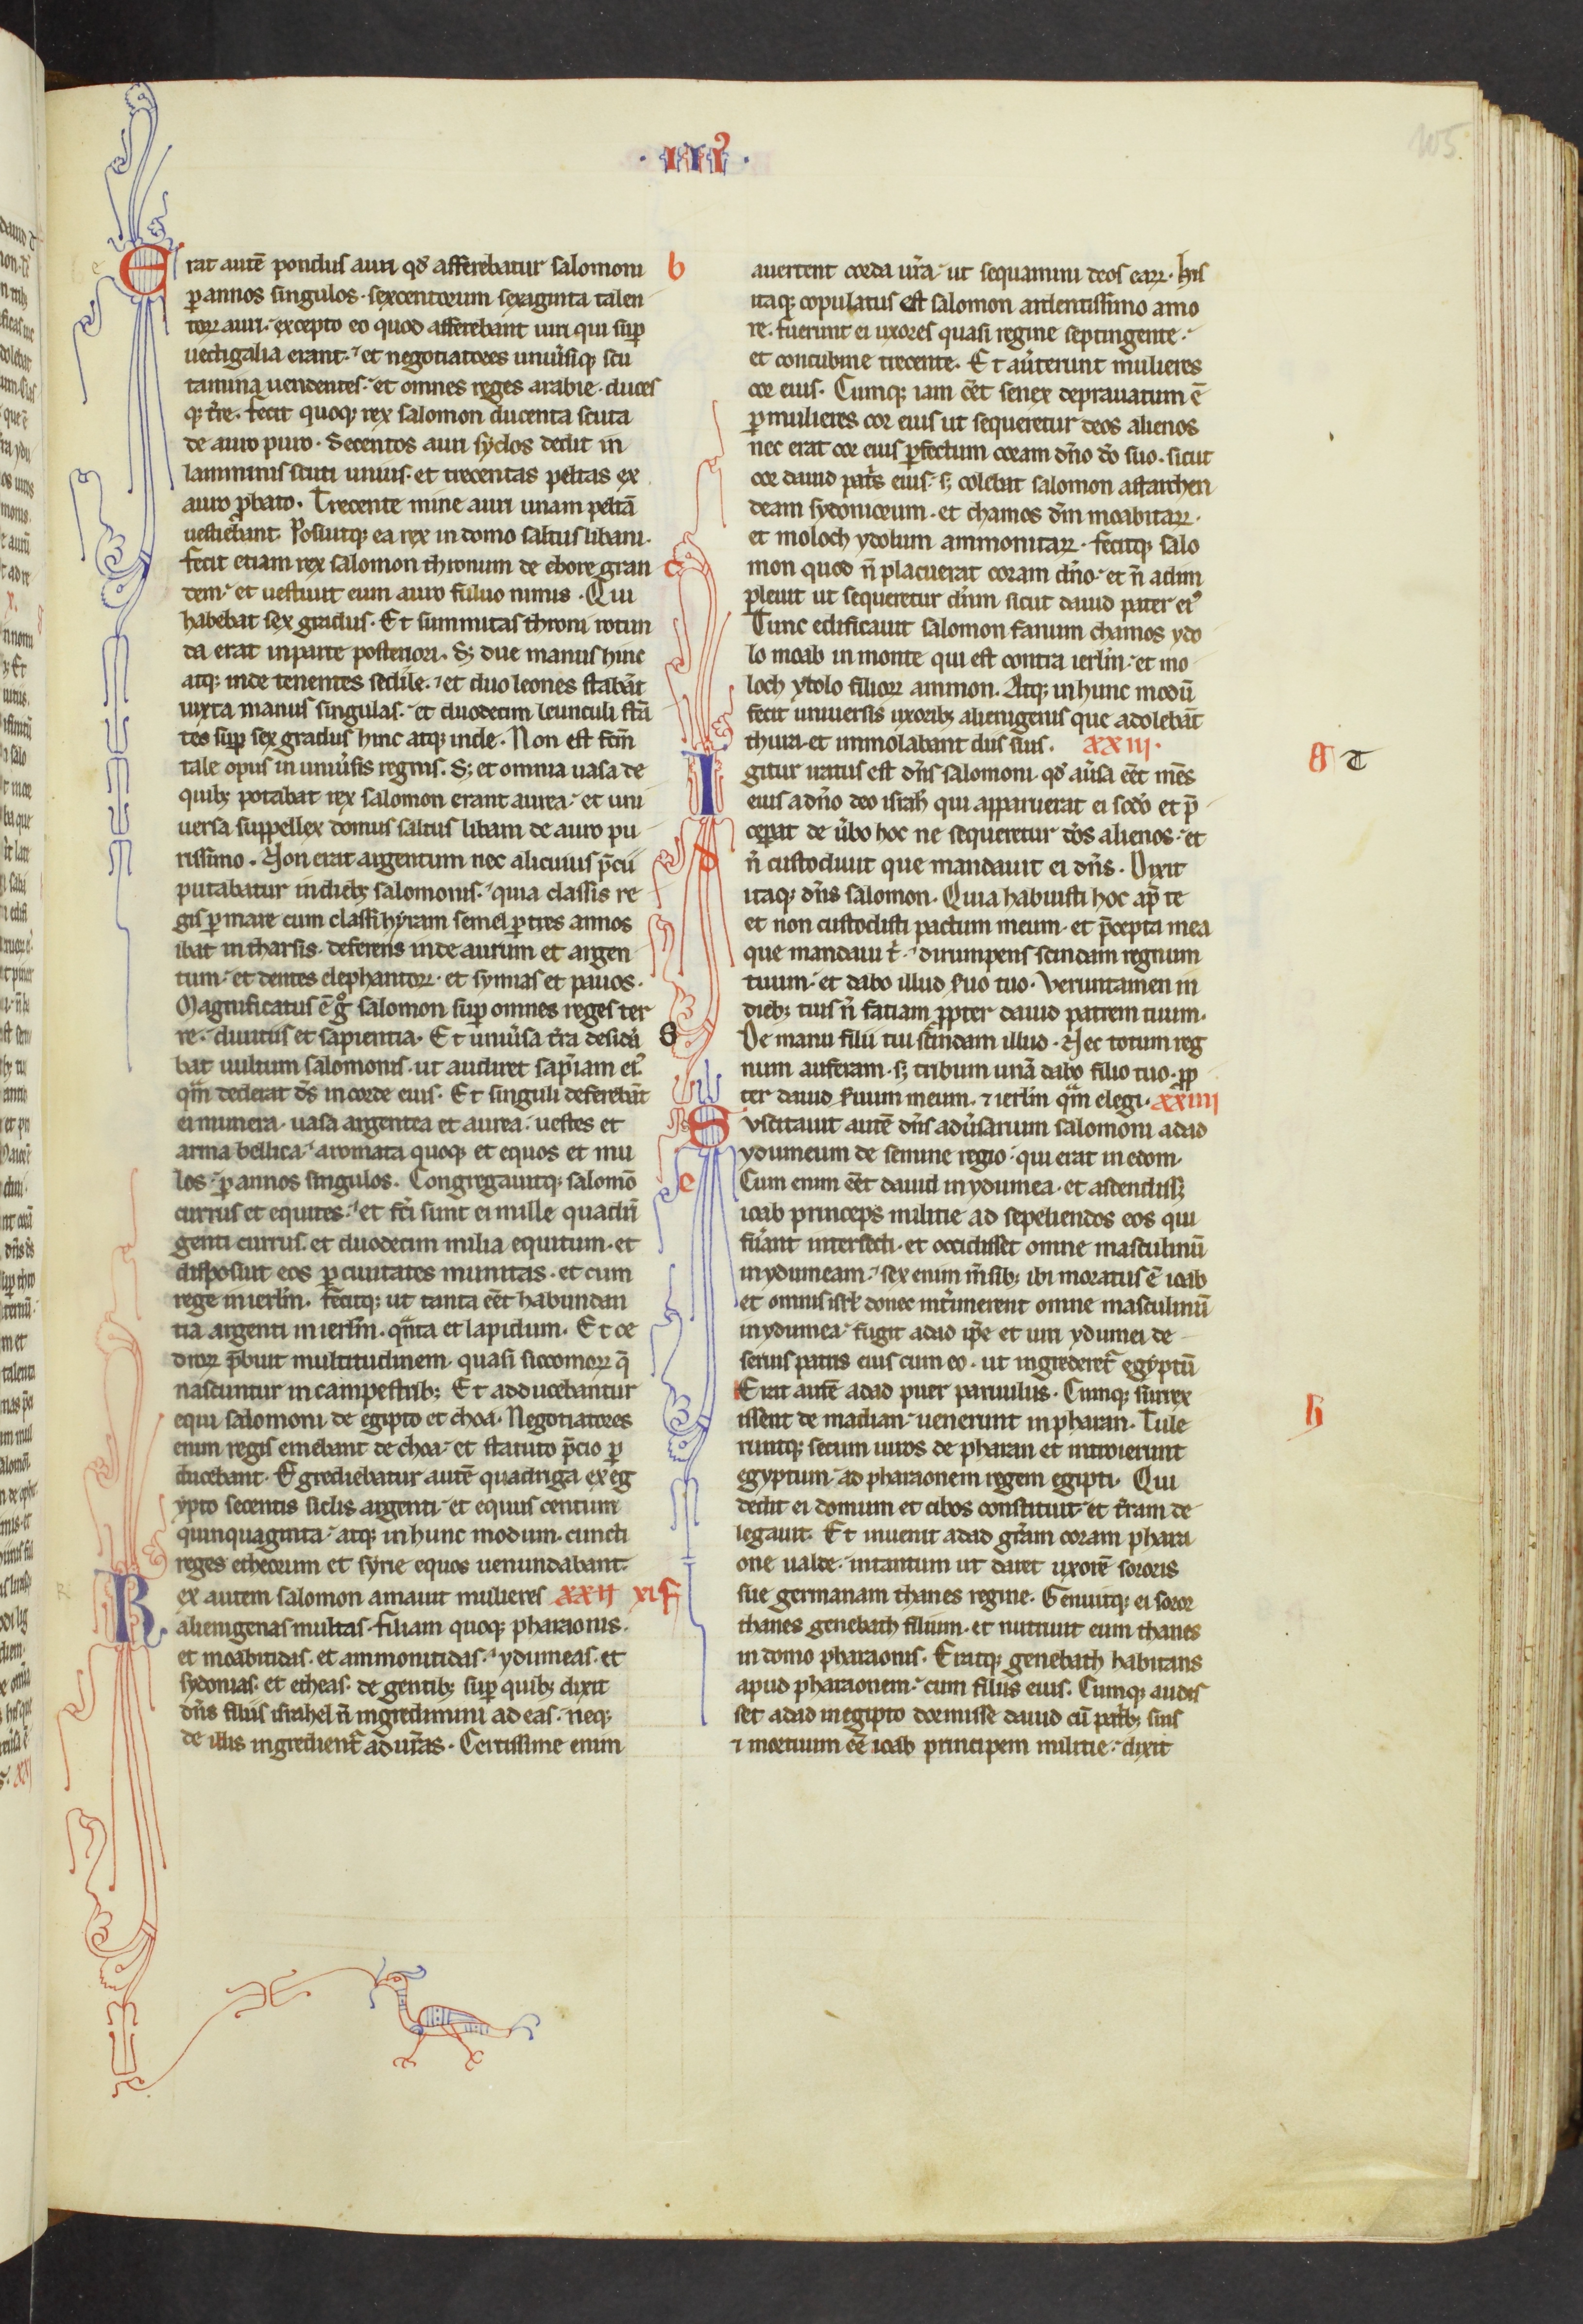 ·III᾿·
105
Erat autē pondus auri qđ afferebatur salomoni b
ꝑ annos singulos· sexcentorum sexaginta talen
toꝝ auri· excepto eo quod afferebant uiri qui suꝑ
uectigalia erant· et negotiatores uniũsiqꝫ scu
tamina uendentes· et omnes reges arabie· duces
qꝫ t̃re· fecit quoqꝫ rex salomon ducenta scuta
de auro puro· Secentos auri syclos dedit in
lamminis scuti unius· et trecentas peltas ex
auro ꝓbato· Trecente mine auri unam peltā
uestiebant· Posuitqꝫ ea rex in domo saltus libani·
fecit etiam rex salomon thronum de ebore gran c
dem· et uestiuit eum auro fuluo nimis· Qui
habebat sex gradus· Et summitas throni rotun
da erat in parte posteriori· Sꝫ due manus hinc
atqꝫ inde tenentes sedile· et duo leones stabāt
iuxta manus singulas· et duodecim leunculi stā
tes suꝑ sex gradus hinc atqꝫ inde· Non est fc̄m
tale opus in uniũsis regnis· Sꝫ et omnia uasa de
quibꝫ potabat rex salomon erant aurea· et uni
uersa suppellex domus saltus libani de auro pu
rissimo· Non erat argentum nec alicuius p̄cii d
putabatur in diebꝫ salomonis· quia classis re
gis ꝑ mare cum classi hyram semel ꝑ tres annos
ibat in tharsis· deferens inde aurum et argen
tum· et dentes elephantoꝝ· et symias et pauos·
Magnificatus ē g̊ salomon suꝑ omnes reges ter
re· diuitiis et sapientia· Et uniũsa t̃ra desidã S
bat uultum salomonis· ut audiret sap̄iam ei᾿
qm̄ dederat dс̄ in corde eius· Et singuli deferebāt
ei munera· uasa argentea et aurea· uestes et
arma bellica· aromata quoqꝫ et equos et mu
los· ꝑ annos singulos· Congregauitqꝫ salomō e
currus et equites· et fc̄i sunt ei mille quadrī
genti currus· et duodecim milia equitum· et
disposuit eos ꝑ ciuitates munitas· et cum
rege in ierlm̄· fecitqꝫ ut tanta eēt habundan
tia argenti in ierlm̄· qn̄ta et lapidum· Et ce
droꝝ p̄buit multitudinem· quasi siccomoꝝ q̄
nascuntur in campestribꝫ Et adducebantur
equi salomoni de egipto et choa· Negotiatores
enim regis emebant de choa· et statuto p̄cio ꝑ
ducebant· Egrediebatur autē quadriga ex eg
ypto secentis siclis argenti· et equus centum
quinquaginta· atqꝫ in hunc modum· cuncti
reges etheorum et syrie equos uenundabant·
Rex autem salomon amauit mulieres XXII XI f
alienigenas multas· filiam quoqꝫ pharaonis·
et moabitidas· et ammonitidas· ydumeas· et
sydonias· et etheas· de gentibꝫ suꝑ quibꝫ dixit
dn̄s filiis israhel n̄ ingredimini ad eas· neqꝫ
de illis ingredient᾿ ad ur̄as· Certissime enim
auertent corda ur̄a· ut sequamini deos eaꝝ· His
itaqꝫ copulatus est salomon ardentissimo amo
re· fuerunt ei uxores quasi regine septingente·
et concubine trecente· Et aũterunt mulieres
cor eius· Cumqꝫ iam eēt senex deprauatum ē
ꝑ mulieres cor eius ut sequeretur deos alienos
nec erat cor eius ꝑfectum coram dn̄o dō suo· sicut
cor dauid patr̄s eius· sꝫ colebat salomon astarthen
deam sydoniorum· et chamos dm̄ moabitaꝝ·
et moloch ydolum ammonitaꝝ· fecitqꝫ salo
mon quod n̄ placuerat coram dn̄o· et n̄ adim
pleuit ut sequeretur dn̄m sicut dauid pater ei᾿
Tunc edificauit salomon fanum chamos ydo
lo moab in monte qui est contra ierlm̄· et mo
loch ydolo filioꝝ ammon· Atqꝫ in hunc modū
fecit uniuersis uxoribꝫ alienigenis que adolebāt
thura· et immolabant diis suis· XXIII· g T
Igitur iratus est dn̄s salomoni· qđ aũsa eēt mēs
eius a dn̄o deo isrl̄ qui apparuerat ei sc̄do et p̄
ceperat de ũbo hoc ne sequeretur dōs alienos· et
n̄ custodiuit que mandauit ei dn̄s· Dixit
itaqꝫ dn̄s salomon· Quia habuisti hoc ap̄ te
et non custodisti pactum meum· et p̄cepta mea
que mandaui t̄· dirumpens scindam regnum
tuum· et dabo illud s̃uo tuo· Veruntamen in
diebꝫ tuis n̄ faciam ꝓpter dauid patrem tuum·
De manu filii tui scindam illud· Nec totum reg
num auferam· sꝫ tribum unā dabo filio tuo· ꝓp
ter dauid s̃uum meum· ⁊ ierlm̄ qm̄ elegi· XXIIII
Suscitauit autē dn̄s adũsarium salomoni adad
ydumeum de semine regio· qui erat in edom·
Cum enim eēt dauid in ydumea· et ascendissꝫ
ioab princeps militie ad sepeliendos eos qui
fũant interfecti· et occidisset omne masculinū
in ydumeam· sex enim m̄sibꝫ ibi moratus ē ioab
et omnis isrl̄ donec int̃imerent omne masculinū
in ydumea· fugit adad ip̄e et uiri ydumei de
seruis patris eius cum eo· ut ingrederet᾿ egyptū
Erat autē adad puer paruulus· Cumqꝫ surrex
issent de madian· uenerunt in pharan· Tule h
runtqꝫ secum uiros de pharan et introierunt
egyptum· ad pharaonem regem egipti· Qui
dedit ei domum et cibos constituit· et t̃ram de
legauit· Et inuenit adad gr̄am coram phara
one ualde· intantum ut daret uxorē sororis
sue germanam thanes regine· Genuitqꝫ ei soror
thanes genebath filium· et nutriuit eum thanes
in domo pharaonis· Eratqꝫ genebath habitans
apud pharaonem· cum filiis eius· Cumqꝫ audis
set adad in egipto dormisse dauid cū patribꝫ suis
⁊ mortuum eē ioab principem militie· dixit